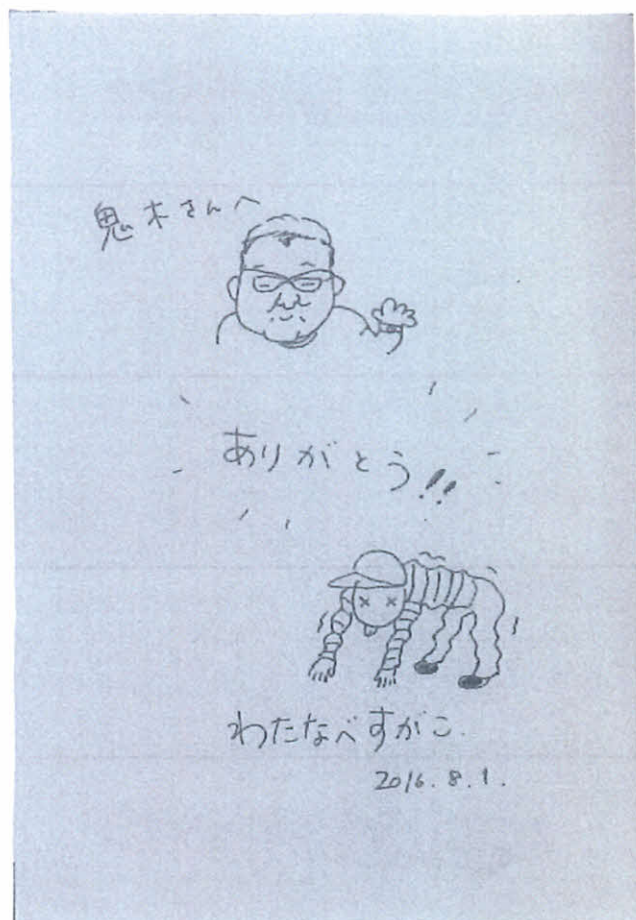 鬼木さんへ
ありがとう!!
わたなべすがこ.
2016.8.1.